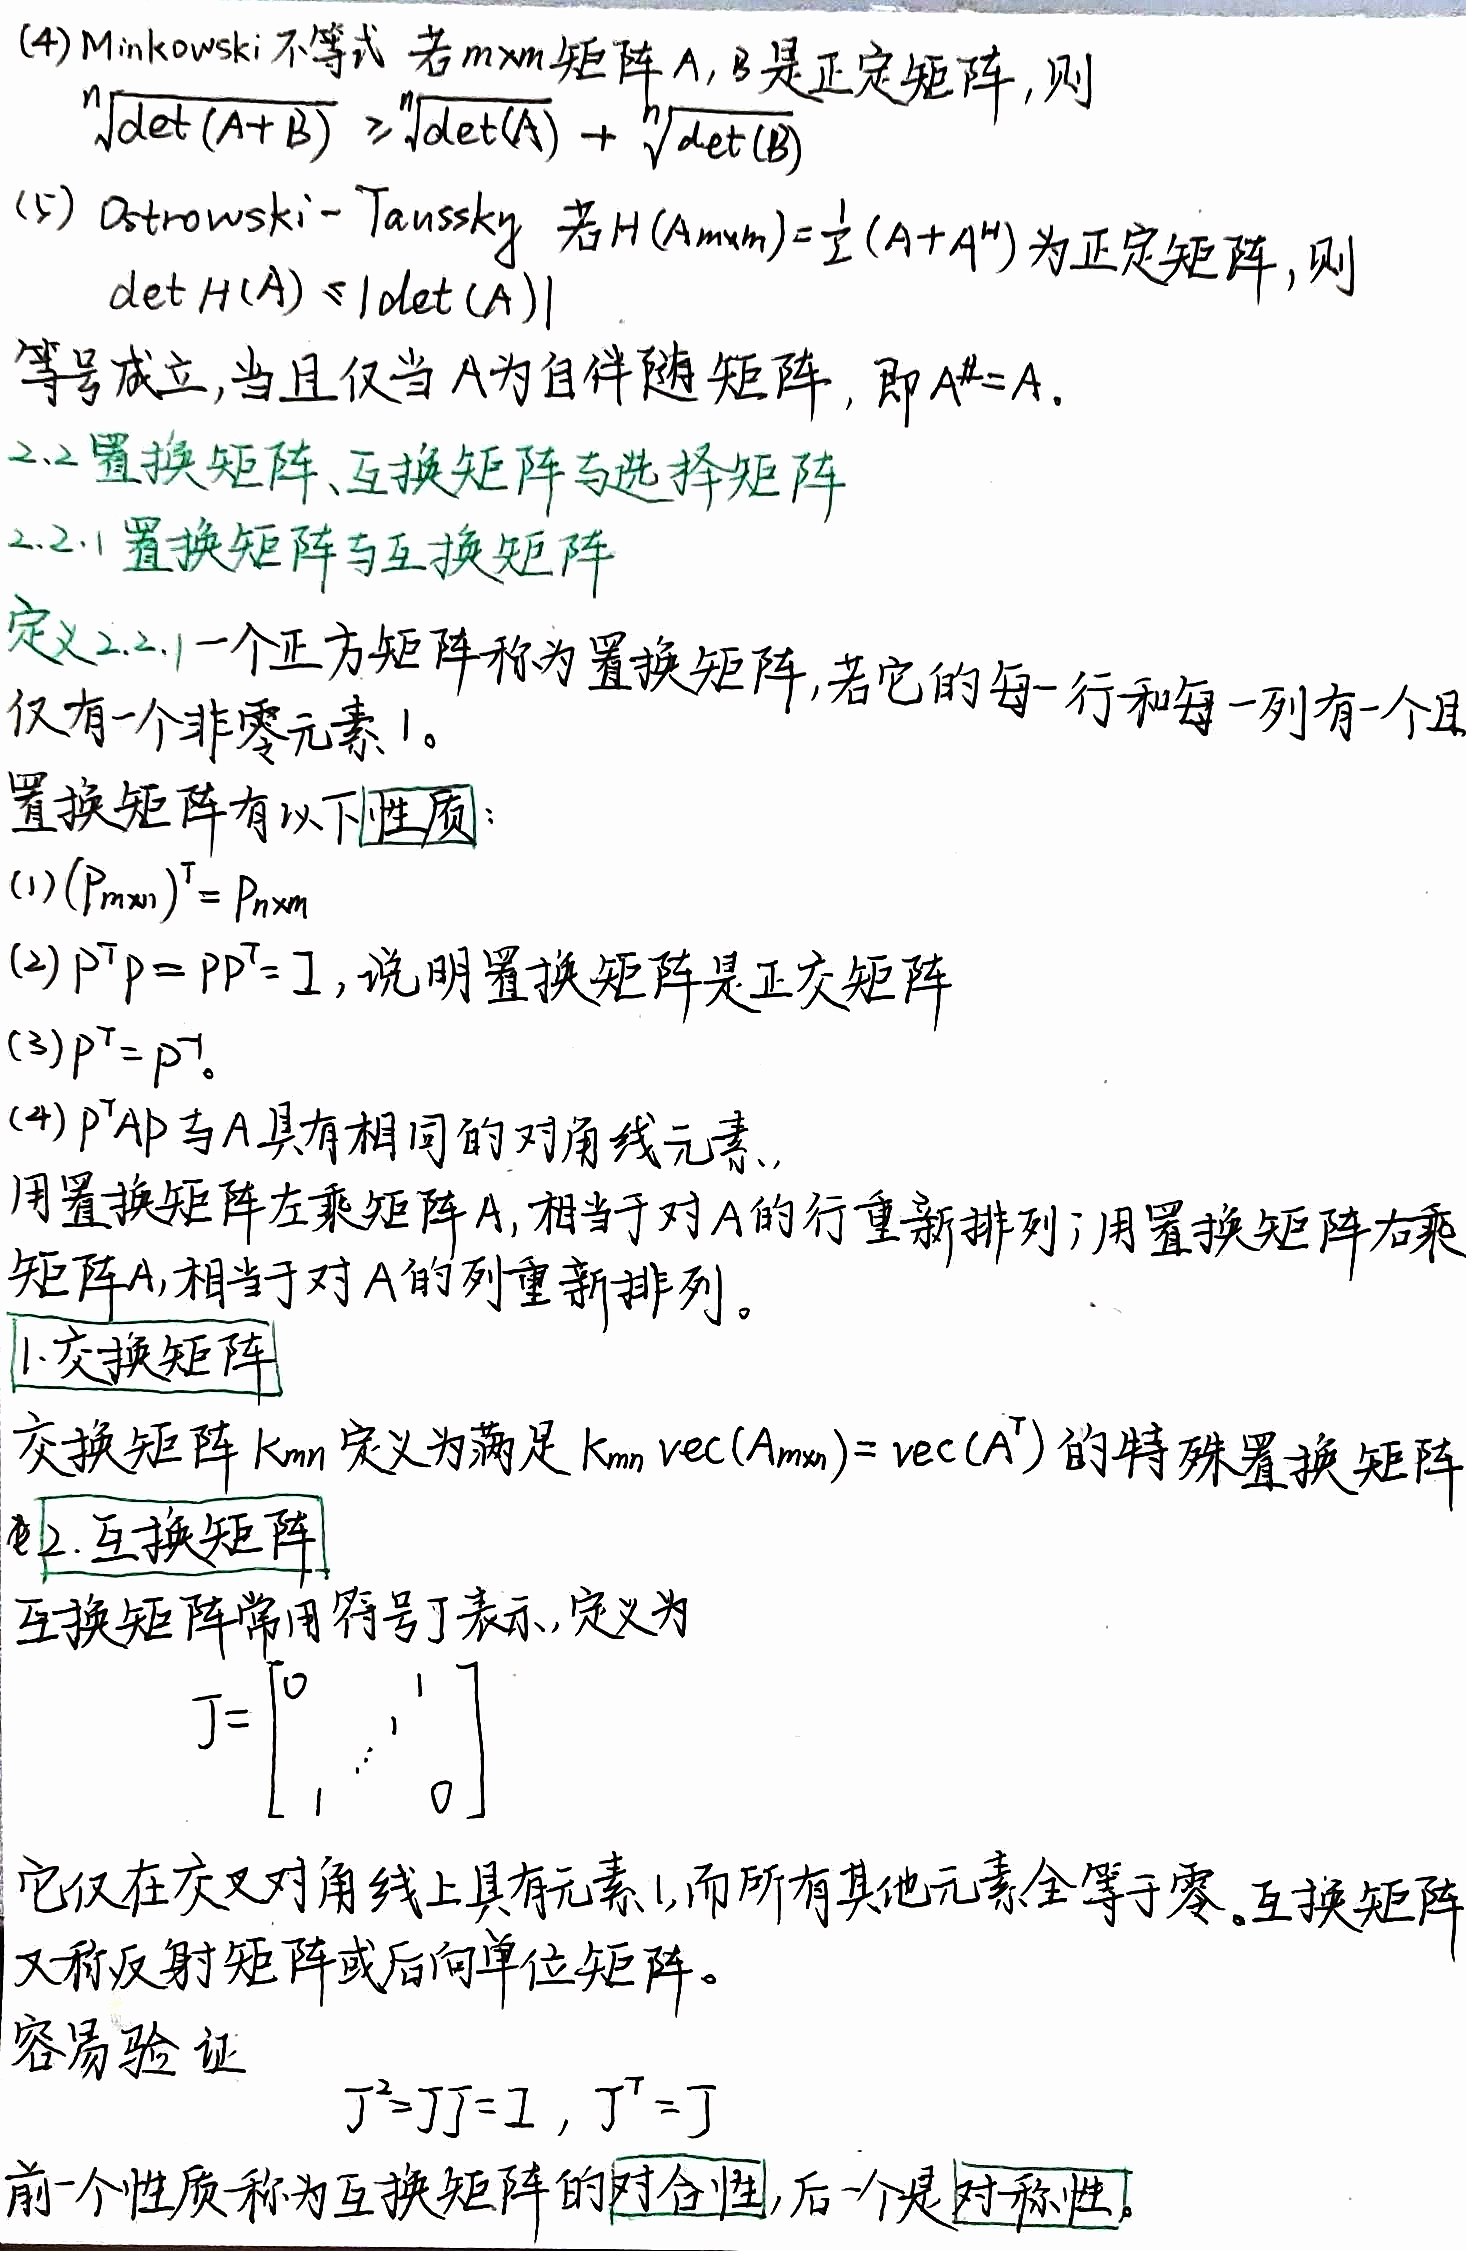 (4) Minkowski 不等式 若m×m矩阵A, B是正定矩阵, 则
ⁿ√det(A+B) ≥ ⁿ√det(A) + ⁿ√det(B)
(5) Ostrowski-Taussky 若H(Am×m)=½(A+Aᴴ)为正定矩阵, 则
det H(A) ≤ |det(A)|
等号成立, 当且仅当A为自伴随矩阵, 即A^#=A.
2.2 置换矩阵、互换矩阵与选择矩阵
2.2.1 置换矩阵与互换矩阵
定义2.2.1 一个正方矩阵称为置换矩阵, 若它的每一行和每一列有一个且
仅有一个非零元素1。
置换矩阵有以下性质:
(1) (Pm×n)ᵀ = Pn×m
(2) PᵀP = PPᵀ = I, 说明置换矩阵是正交矩阵
(3) Pᵀ = P⁻¹。
(4) PᵀAP与A具有相同的对角线元素.,
用置换矩阵左乘矩阵A, 相当于对A的行重新排列; 用置换矩阵右乘
矩阵A, 相当于对A的列重新排列。
1. 交换矩阵
交换矩阵Kmn定义为满足Kmn vec(Am×n) = vec(Aᵀ)的特殊置换矩阵
2. 互换矩阵
互换矩阵常用符号J表示, 定义为
J = [0 1
1
⋰
1 0]
它仅在交叉对角线上具有元素1, 而所有其他元素全等于零。互换矩阵
又称反射矩阵或后向单位矩阵。
容易验证
J² = JJ = I, Jᵀ = J
前一个性质称为互换矩阵的对合性, 后一个是对称性。